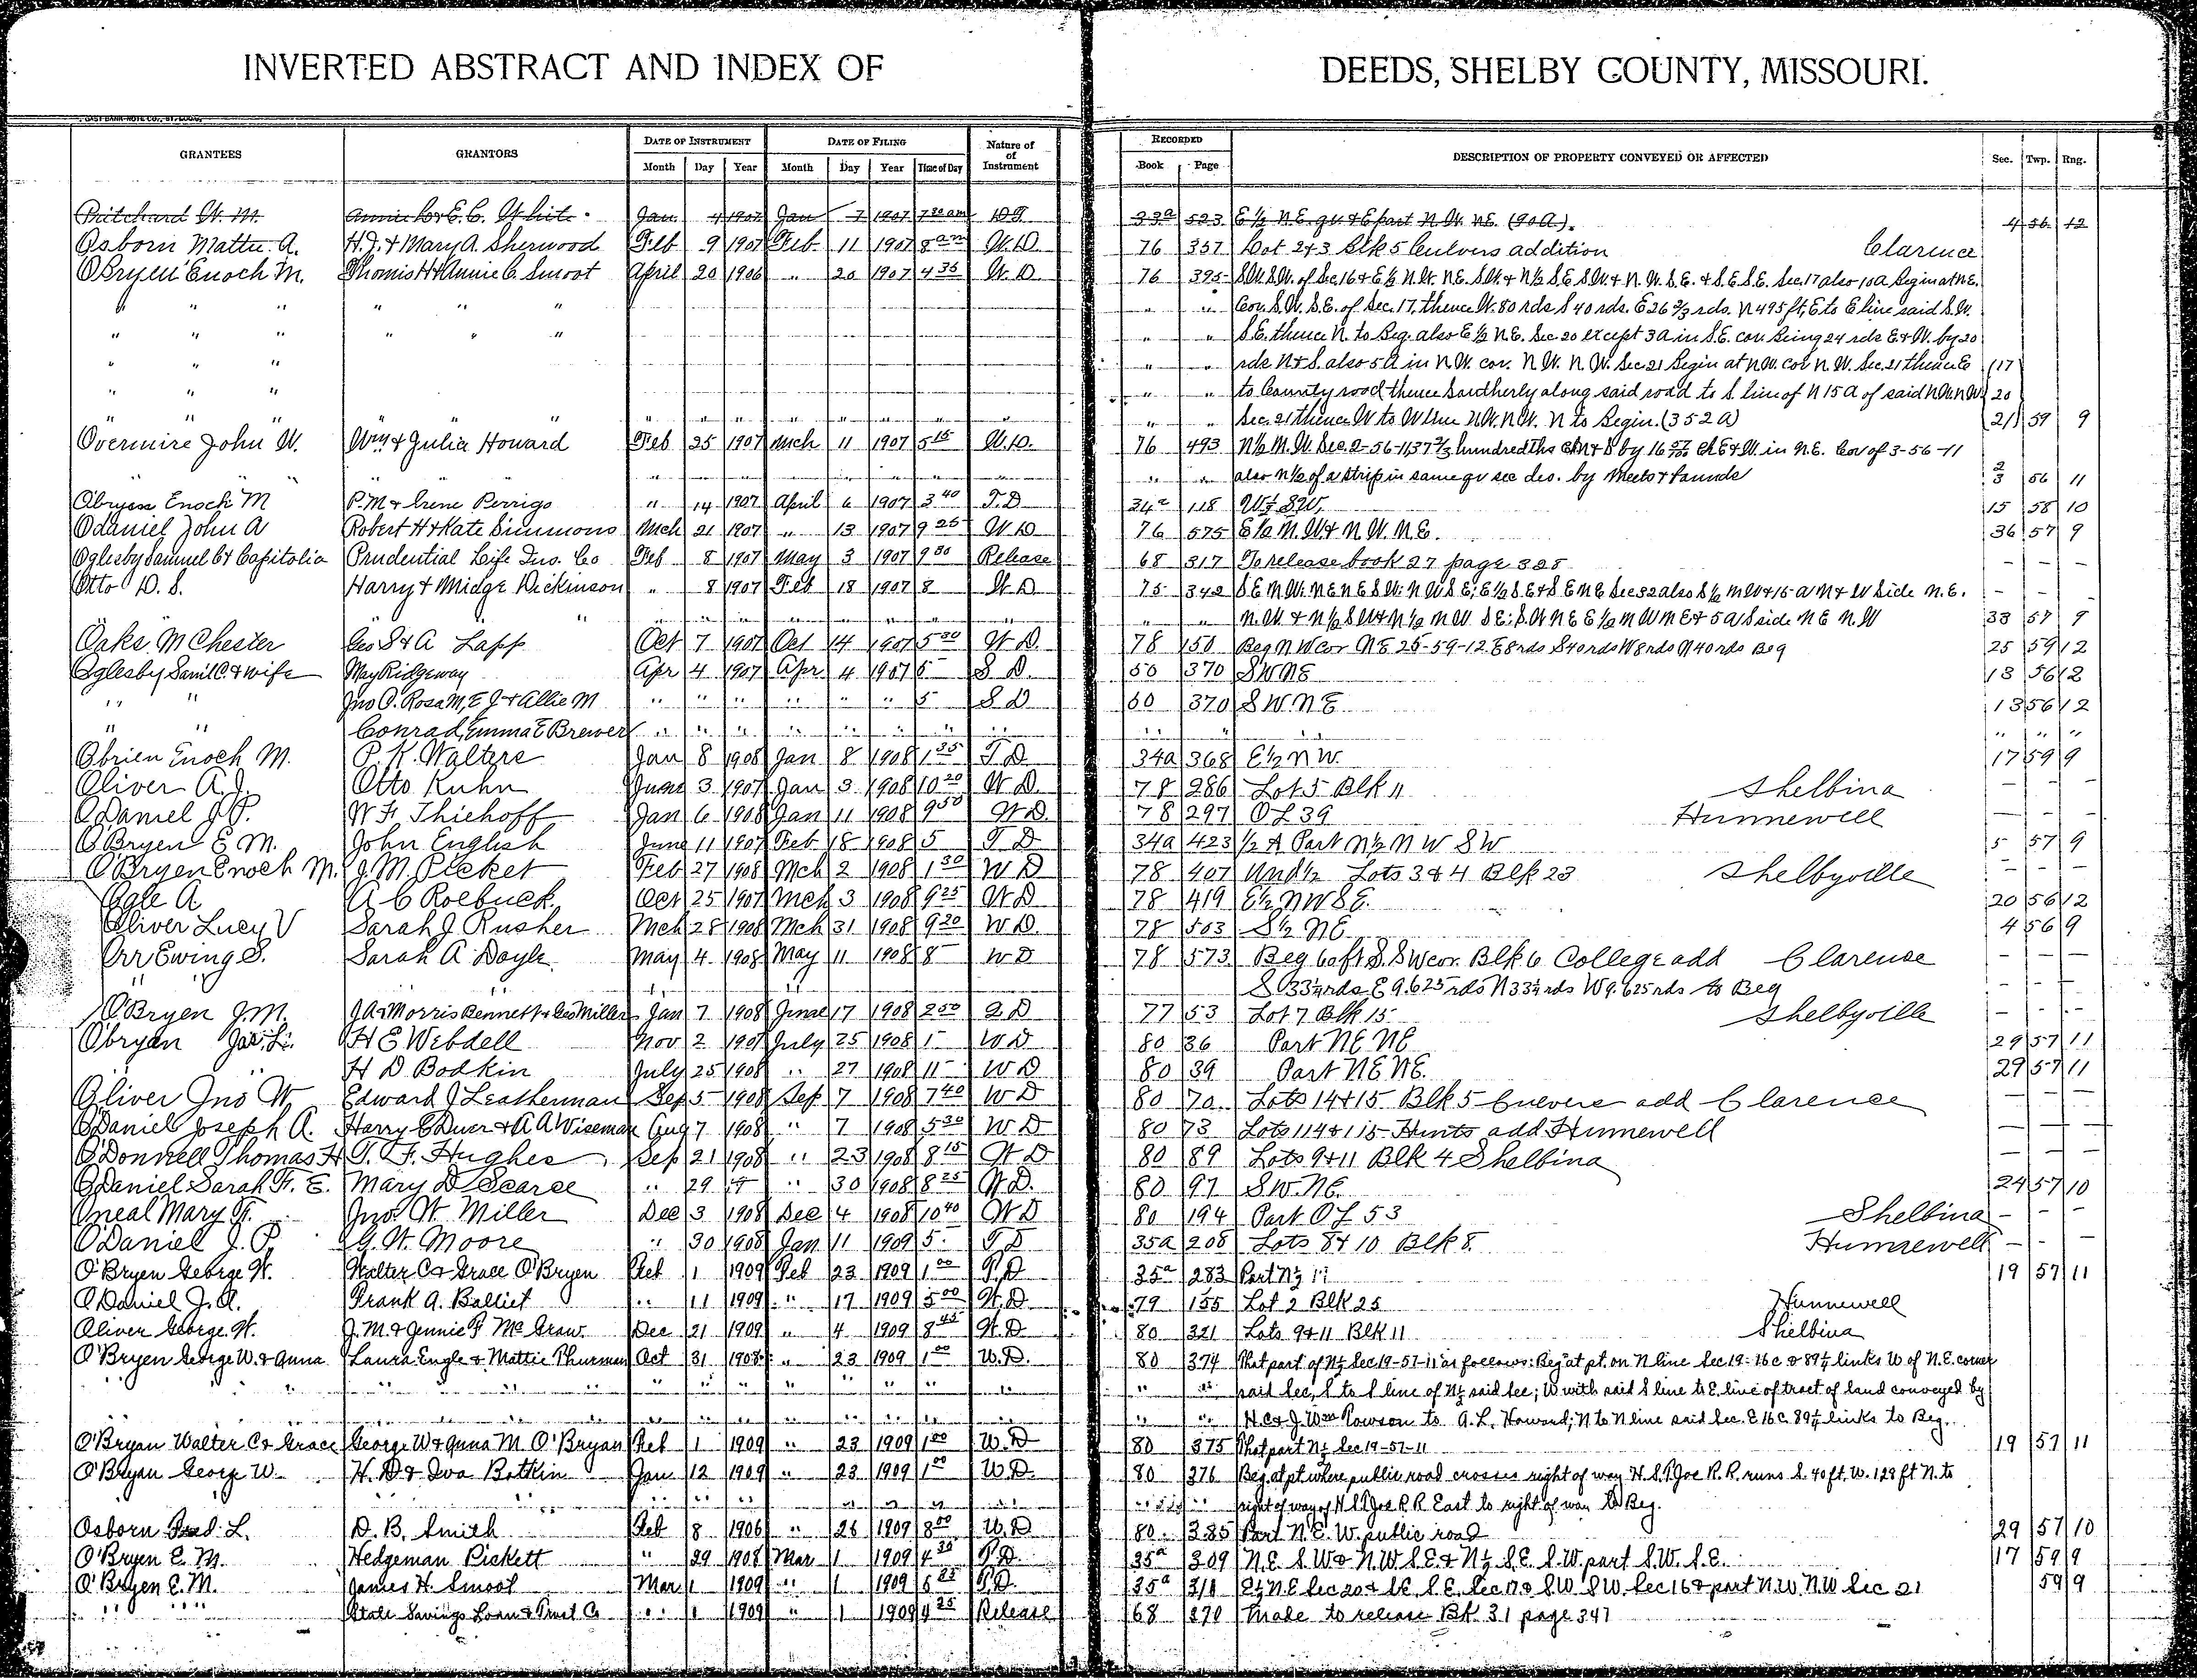 INVERTED ABSTRACT AND INDEX OF DEEDS, SHELBY COUNTY, MISSOURI.
GRANTEES GRANTORS DATE OF INSTRUMENT DATE OF FILING Nature of Instrument RECORDED DESCRIPTION OF PROPERTY CONVEYED OR AFFECTED Sec. Twp. Rng.
Month Day Year Month Day Year Time of Day Book Page
Pritchard W. M. Annie L & E. C. White Jan 4 1907 Jan 7 1907 7 30 am DT 33a 523 E ½ N.E. qu & E part N.W. NE. (90a). 4 56 12
Osborn Mattie A. H.J. & Mary A. Sherwood Feb 9 1907 Feb 11 1907 8 am W.D. 76 357 Lot 2 & 3 Blk 5 Culvers addition Clarence
OBryen Enoch M. Thomis H & Annie C. Smoot April 20 1906 " 20 1907 4 35 W.D. 76 395 S.W. S.W. of Sec. 16 & E ½ N.W. N.E. S.W. & N ½ S.E. S.W. & N.W. S.E. & S.E. S.E. Sec. 17 also 10a Begin at N.E.
" " " " " " " " Cor. S.W. S.E. of Sec. 17, thence W. 80 rds S 40 rds. E 26 ⅔ rds. N 495 ft, E to E line said S.W.
" " " " " " " " S.E. thence N. to Beg. also E ½ N.E. Sec 20 except 3a in S.E. cor being 24 rds E & W. by 20
" " " " " rds N & S. also 5a in N.W. cor. N.W. N.W. Sec 21 Begin at N.W. cor N.W. Sec. 21 thence E (17
" " " " " to County road thence Southerly along said road to S line of N 15a of said N.W. N.W. 20
" " " " " " " " " " " " " " " Sec. 21 thence W to W line N.W. N.W. N to Begin. (352a) 21) 59 9
Overmire John W. Wm & Julia Howard Feb 25 1907 Mch 11 1907 5 15 W.D. 76 493 N ½ N.W. Sec. 2-56-11, 37 ⅔ hundredths Ch N & S by 16 Ch E & W. in N.E. Cor of 3-56-11
" " " " " " " " " also N ½ of a strip in same qr sec des. by meets & bounds 2 3 56 11
Obryen Enoch M P.M & Irene Perrigo " 14 1907 April 6 1907 3 40 T.D 34a 118 W ½ S.W. 15 58 10
Odaniel John A Robert H & Kate Simmons Mch 21 1907 " 13 1907 9 25 W.D 76 575 E ½ N.W & N.W. N.E. 36 57 9
Oglesby Samuel C & Capitolia Prudential Life Ins. Co Feb 8 1907 May 3 1907 9 30 Release 68 317 To release book 27 page 325 - - -
Otto D. S. Harry & Midge Dickinson " 8 1907 Feb 18 1907 8 W D 75 342 S E N W: N E N E S W: N W S E; E ½ S.E & S.E N E Sec 32 also S ½ N W & 15 a N & W side N.E. - - -
" " " " " " " " " " " N.W. & N ½ S W & N ½ N W S E: S W N E E ½ N W N E & 5a S side N E N W 33 57 9
Oaks. M Chester Geo S & A Lapp Oct 7 1907 Oct 14 1907 5 30 W D. 78 150 Beg N W Cor N E 25-59-12 E 8 rds S 40 rds W 8 rds N 40 rds Beg 25 59 12
Oglesby Saml C. & wife May Ridgeway Apr 4 1907 Apr 4 1907 5 S D. 60 370 S W N E 13 56 12
" " Jno O. Rosa M, E J & Allie M " " " " " " 5 S D 60 370 S W. N E 13 56 12
" " Conrad, Emma E Brewer " " " " " " " " " " " " " "
Obrien Enoch M. P. K. Walters Jan 8 1908 Jan 8 1908 1 35 T D 34a 368 E ½ N W. 17 59 9
Oliver A. J. Otto Kuhn June 3 1907 Jan 3 1908 10 20 W D. 78 286 Lot 5 Blk 11 Shelbina - - -
ODaniel J P. W F. Thiehoff Jan 6 1908 Jan 11 1908 9 50 W D 78 297 O L 39 Hunnewell - - -
OBryen E M. John English June 11 1907 Feb 18 1908 5 T D 34a 423 ½ A Part N ½ N W S W 5 57 9
OBryen Enoch M. J. M. Picket Feb 27 1908 Mch 2 1908 1 30 W D 78 407 Und ½ Lots 3 & 4 Blk 23 Shelbyville - - -
Ogle A A C Roebuck Oct 25 1907 Mch 3 1908 9 25 W D 78 419 E ½ N W S E. 20 56 12
Oliver Lucy V Sarah J. Rusher Mch 28 1908 Mch 31 1908 9 20 W D. 78 503 S ½ N E 4 56 9
Orr Ewing S. Sarah A Doyle May 4 1908 May 11 1908 8 W D 78 573 Beg 60 ft S. S W cor. Blk 6 College add Clarence - - -
" " " " S 33 ¼ rds E 9.625 rds N 33 ¼ rds W 9.625 rds to Beg - - -
O'Bryen J. M. J. A. Morris Bennett & Geo Miller Jan 7 1908 June 17 1908 2 50 Q D 77 53 Lot 7 Blk 15 Shelbyville - - -
Obryan Jas. L. H E Webdell Nov 2 1907 July 25 1908 1 W D 80 36 Part N E N E 29 57 11
" " H D Bodkin July 25 1908 " 27 1908 11 W D 80 39 Part N E N E. 29 57 11
Oliver Jno W Edward J Leatherman Sep 5 1908 Sep 7 1908 7 40 W D 80 70 Lots 14 & 15 Blk 5 Culvers add Clarence - - -
ODaniel Joseph A. Harry C Duer & A A Wiseman Aug 7 1908 " 7 1908 5 30 W D 80 73 Lots 114 & 115 Hunts add Hunnewell - - -
O'Donnell Thomas H T. F. Hughes Sep 21 1908 " 23 1908 8 15 W D 80 89 Lots 9 & 11 Blk 4 Shelbina - - -
ODaniel Sarah F. E. Mary D Scarce " 29 " 30 1908 8 25 W D. 80 97 S.W. N.E. 24 57 10
Oneal Mary F. Jno. W. Miller Dec 3 1908 Dec 4 1908 10 40 W D 80 194 Part O L 53 Shelbina - - -
O'Daniel J. P. G. W. Moore " 30 1908 Jan 11 1909 5 T D 35a 208 Lots 8 & 10 Blk 8. Hunnewell - - -
O'Bryen George W. Walter C & Grace O'Bryen Feb 1 1909 Feb 23 1909 1 00 T.D 35a 283 Part N ½ 19 57 11
O Daniel J. A. Frank A. Balliet " 11 1909 " 17 1909 5 00 W.D 79 155 Lot 2 Blk 25 Hunnewell
Oliver George W. J. M. & Jennie F. McGraw. Dec 21 1909 " 4 1909 8 45 W.D. 80 321 Lots 9 & 11 Blk 11 Shelbina
O'Bryen George W. & Anna Laura Engle & Mattie Thurman Oct 31 1908 " 23 1909 1 00 W.D. 80 374 That part of N ½ Sec 19-57-11 as follows: Beg at pt. on N line Sec 19-16 c & 89 ½ links W of N.E. corner
" " " " " " " " " " " " said Sec, S to S line of N ½ said Sec; W with said S line to E line of tract of land conveyed by
" " " " " " " " " " " " H. C & J. Wm Rowson to A. L. Howard; N to N line said Sec. E 16 c. 89 ½ links to Beg.
O'Bryan Walter C & Grace George W & Anna M. O'Bryan Feb 1 1909 " 23 1909 1 00 W.D 80 375 That part N ½ Sec 19-57-11 19 57 11
O'Bryan George W. H. D & Iva Botkin Jan 12 1909 " 23 1909 1 00 W.D. 80 376 Beg. at pt where public road crosses right of way H. & St Joe R.R. runs S. 40 ft. W. 129 ft N. to
" " " " " " " " " right of way of H & St Joe R R East to right of way to Beg.
Osborn Fred. L. D. B. Smith Feb 8 1906 " 26 1909 8 00 W.D 80 385 Part N.E. W. public road 29 57 10
O'Bryen E. M. Hedgeman Pickett " 29 1908 Mar 1 1909 4 35 T.D. 35a 309 N.E. S.W & N.W S.E & N ½ S.E. S.W. part S.W. S.E. 17 59 9
O'Bryen E. M. James H. Smoot Mar 1 1909 " 1 1909 5 25 T.D. 35a 310 E ½ N.E Sec 20 & S.E. S.E. Sec 17 & S.W S.W. Sec 16 & part N.W. N.W Sec 21 59 9
" " State Savings Loan & Trust Co " 1 1909 " 1 1909 4 25 Release 68 370 Made to release Bk. 31 page 347